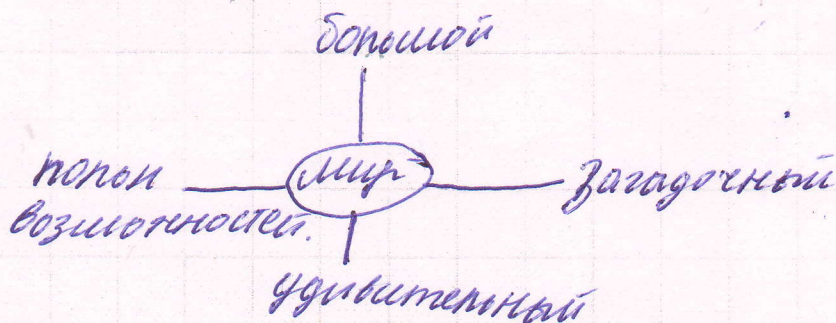 большой
полон
возможностей.
мир
Загадочный
удивительный